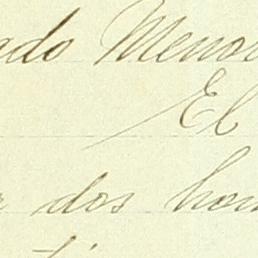 ado Menor
El
dos hom